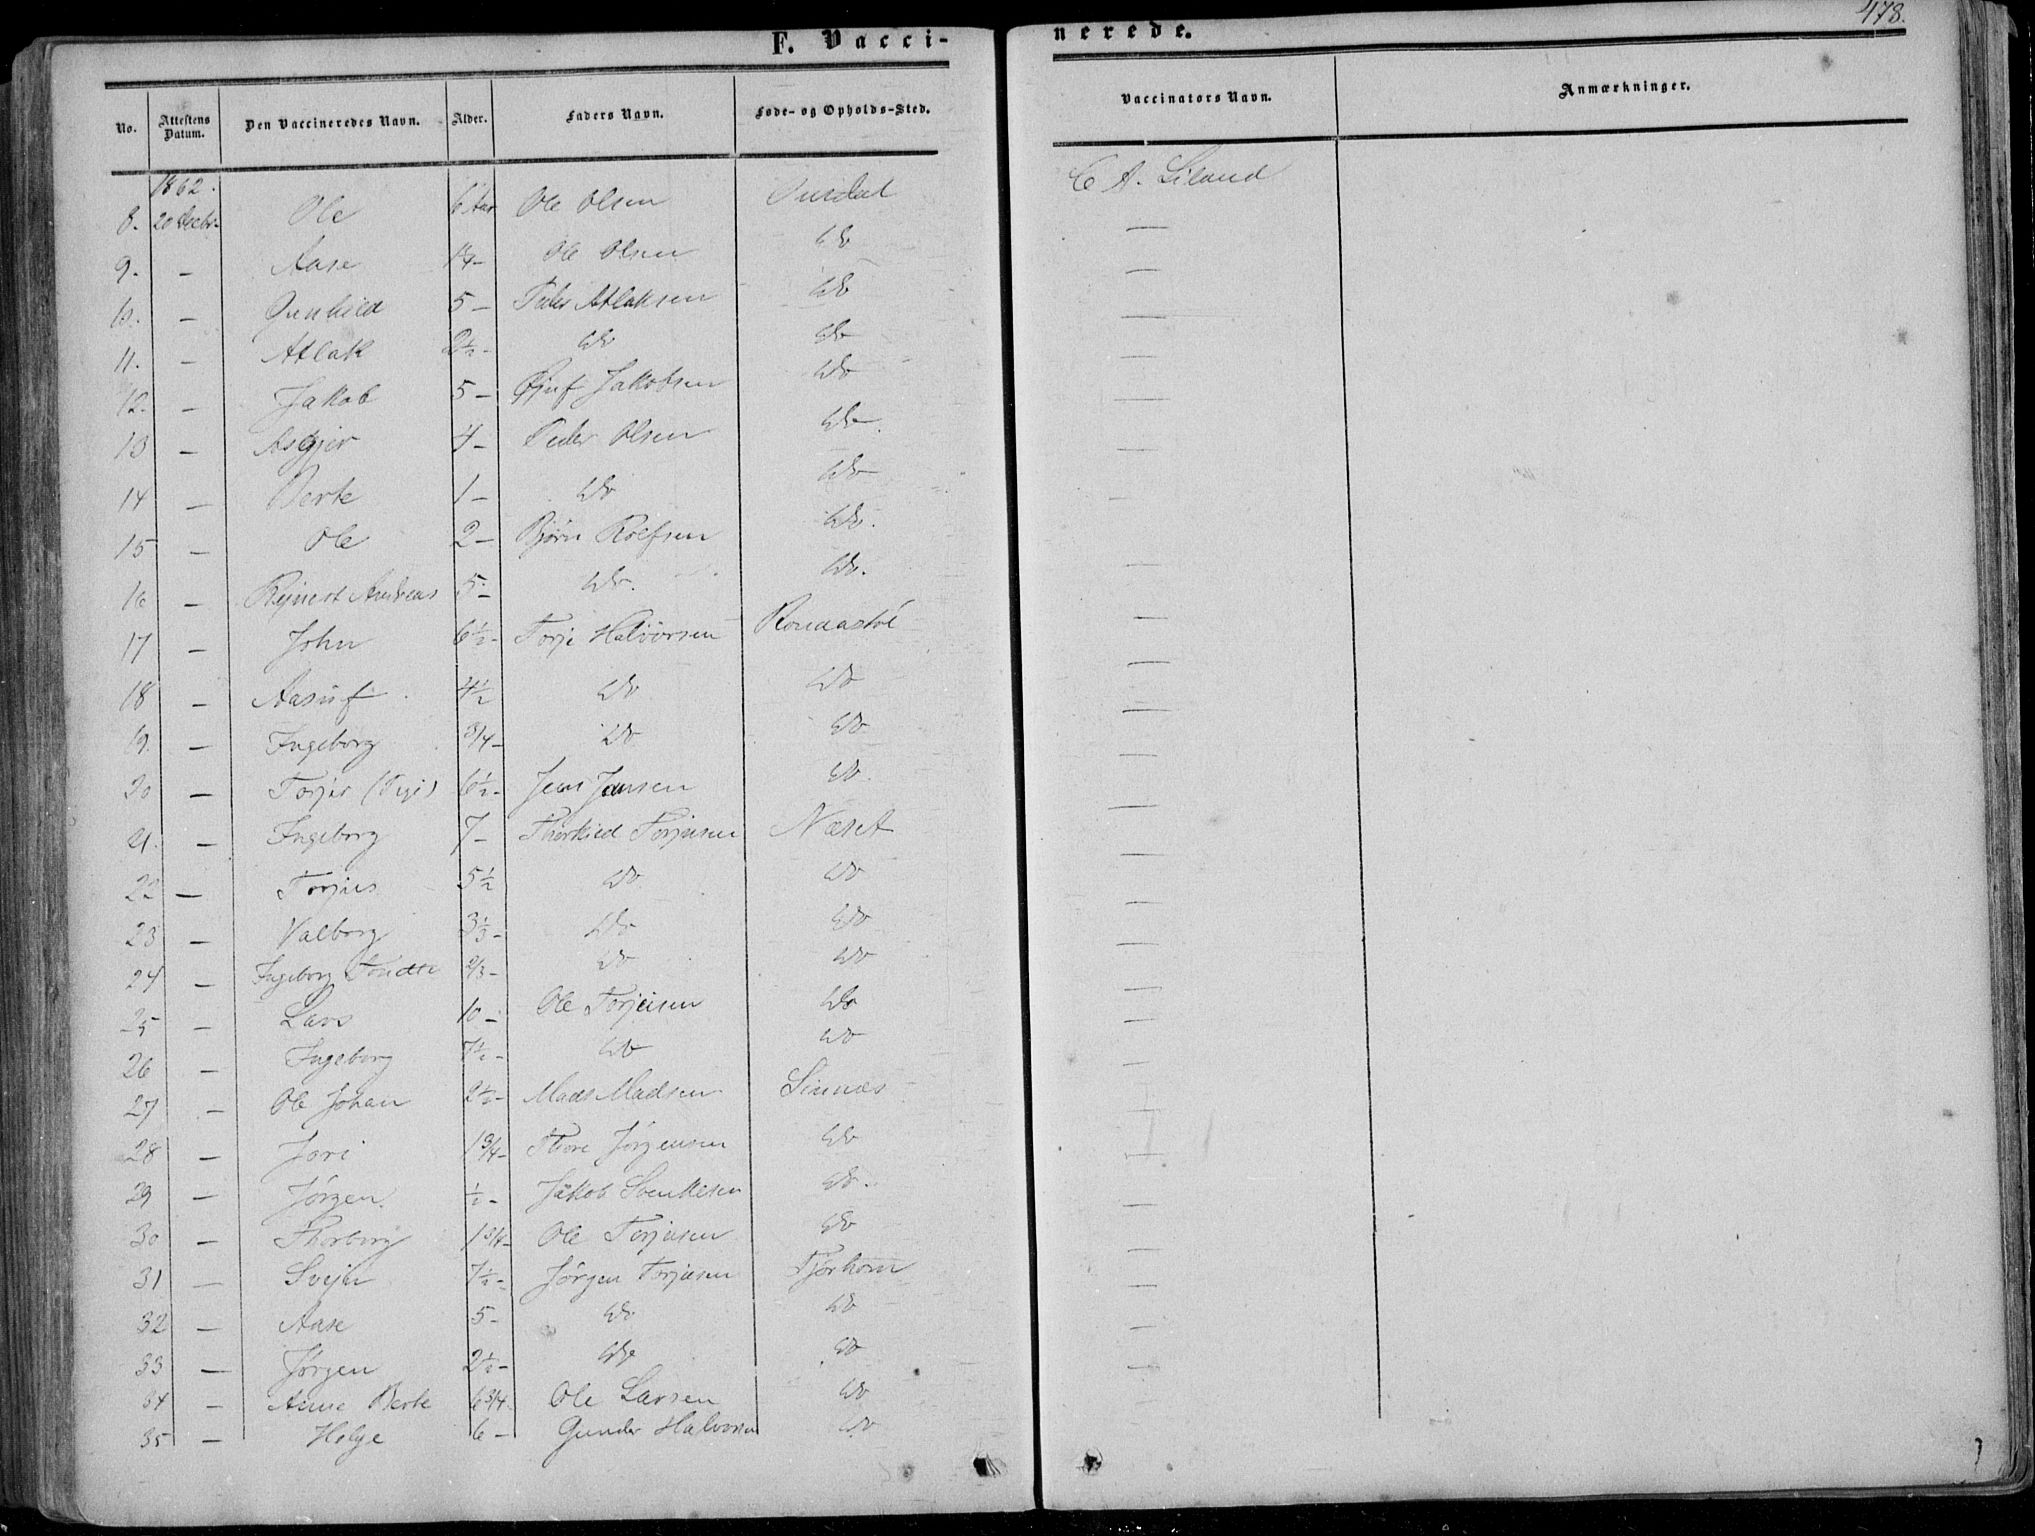 478.
F. Vacci-
nerede.
No. Attestens Datum. Den Vaccineredes Navn. Alder. Faders Navn. Føde- og Opholds-Sted. Vaccinators Navn. Anmærkninger.
1862.
8. 20 Decbr. Ole 6 Aar Ole Olsen C A. Liland
9. — Aase 14 - Ole Olsen Do —
10. — Gunhild 5 - Peder Atlaksen Do —
11. — Atlak 2½ - Do Do —
12. — Jakob 5 - Jakobsen Do —
13 — Asgjer 4 - Peder Olsen Do. —
14 — Berte 1 - Do Do —
15 — Ole 2 - Bjørn Rolfsen Do. —
16 — Rejnert Andreas 5 - Do. Do. —
17 — John 6½ - Torje Halvorsen —
18 — 4½ Do Do —
19. — Ingeborg ¾ - Do Do —
20 — Torjer 6½ - Jens Jansen Do. —
21. — Ingeborg 7 - Thorkild Torjusen Næset —
22 — Torjus 5½ Do Do —
23 — Valborg 3⅓ - Do Do —
24 — Ingeborg ⅔ - Do Do —
25 — Lars 10 - Ole Torjeisen Do —
26 — Ingeborg 7½ - Do Do —
27 — Ole Johan 2½ - Mads Madsen Sinnæs —
28 — Jori 1¾ - Thore Jørgensen Do —
29 — Jørgen ½ - Jakob Svenkesen Do. —
30 — Thorborg 1¾ - Ole Torjeisen Do —
31 — Svejn 7½ - Jørgen Torjusen Tjørhom —
32 — Aase 5 - Do Do —
33 — Jørgen 2½ - Do Do —
34 — Anne Berte 6¾. Ole Larsen Do
35 — Helge 6 - Gunder Halvorsen Do